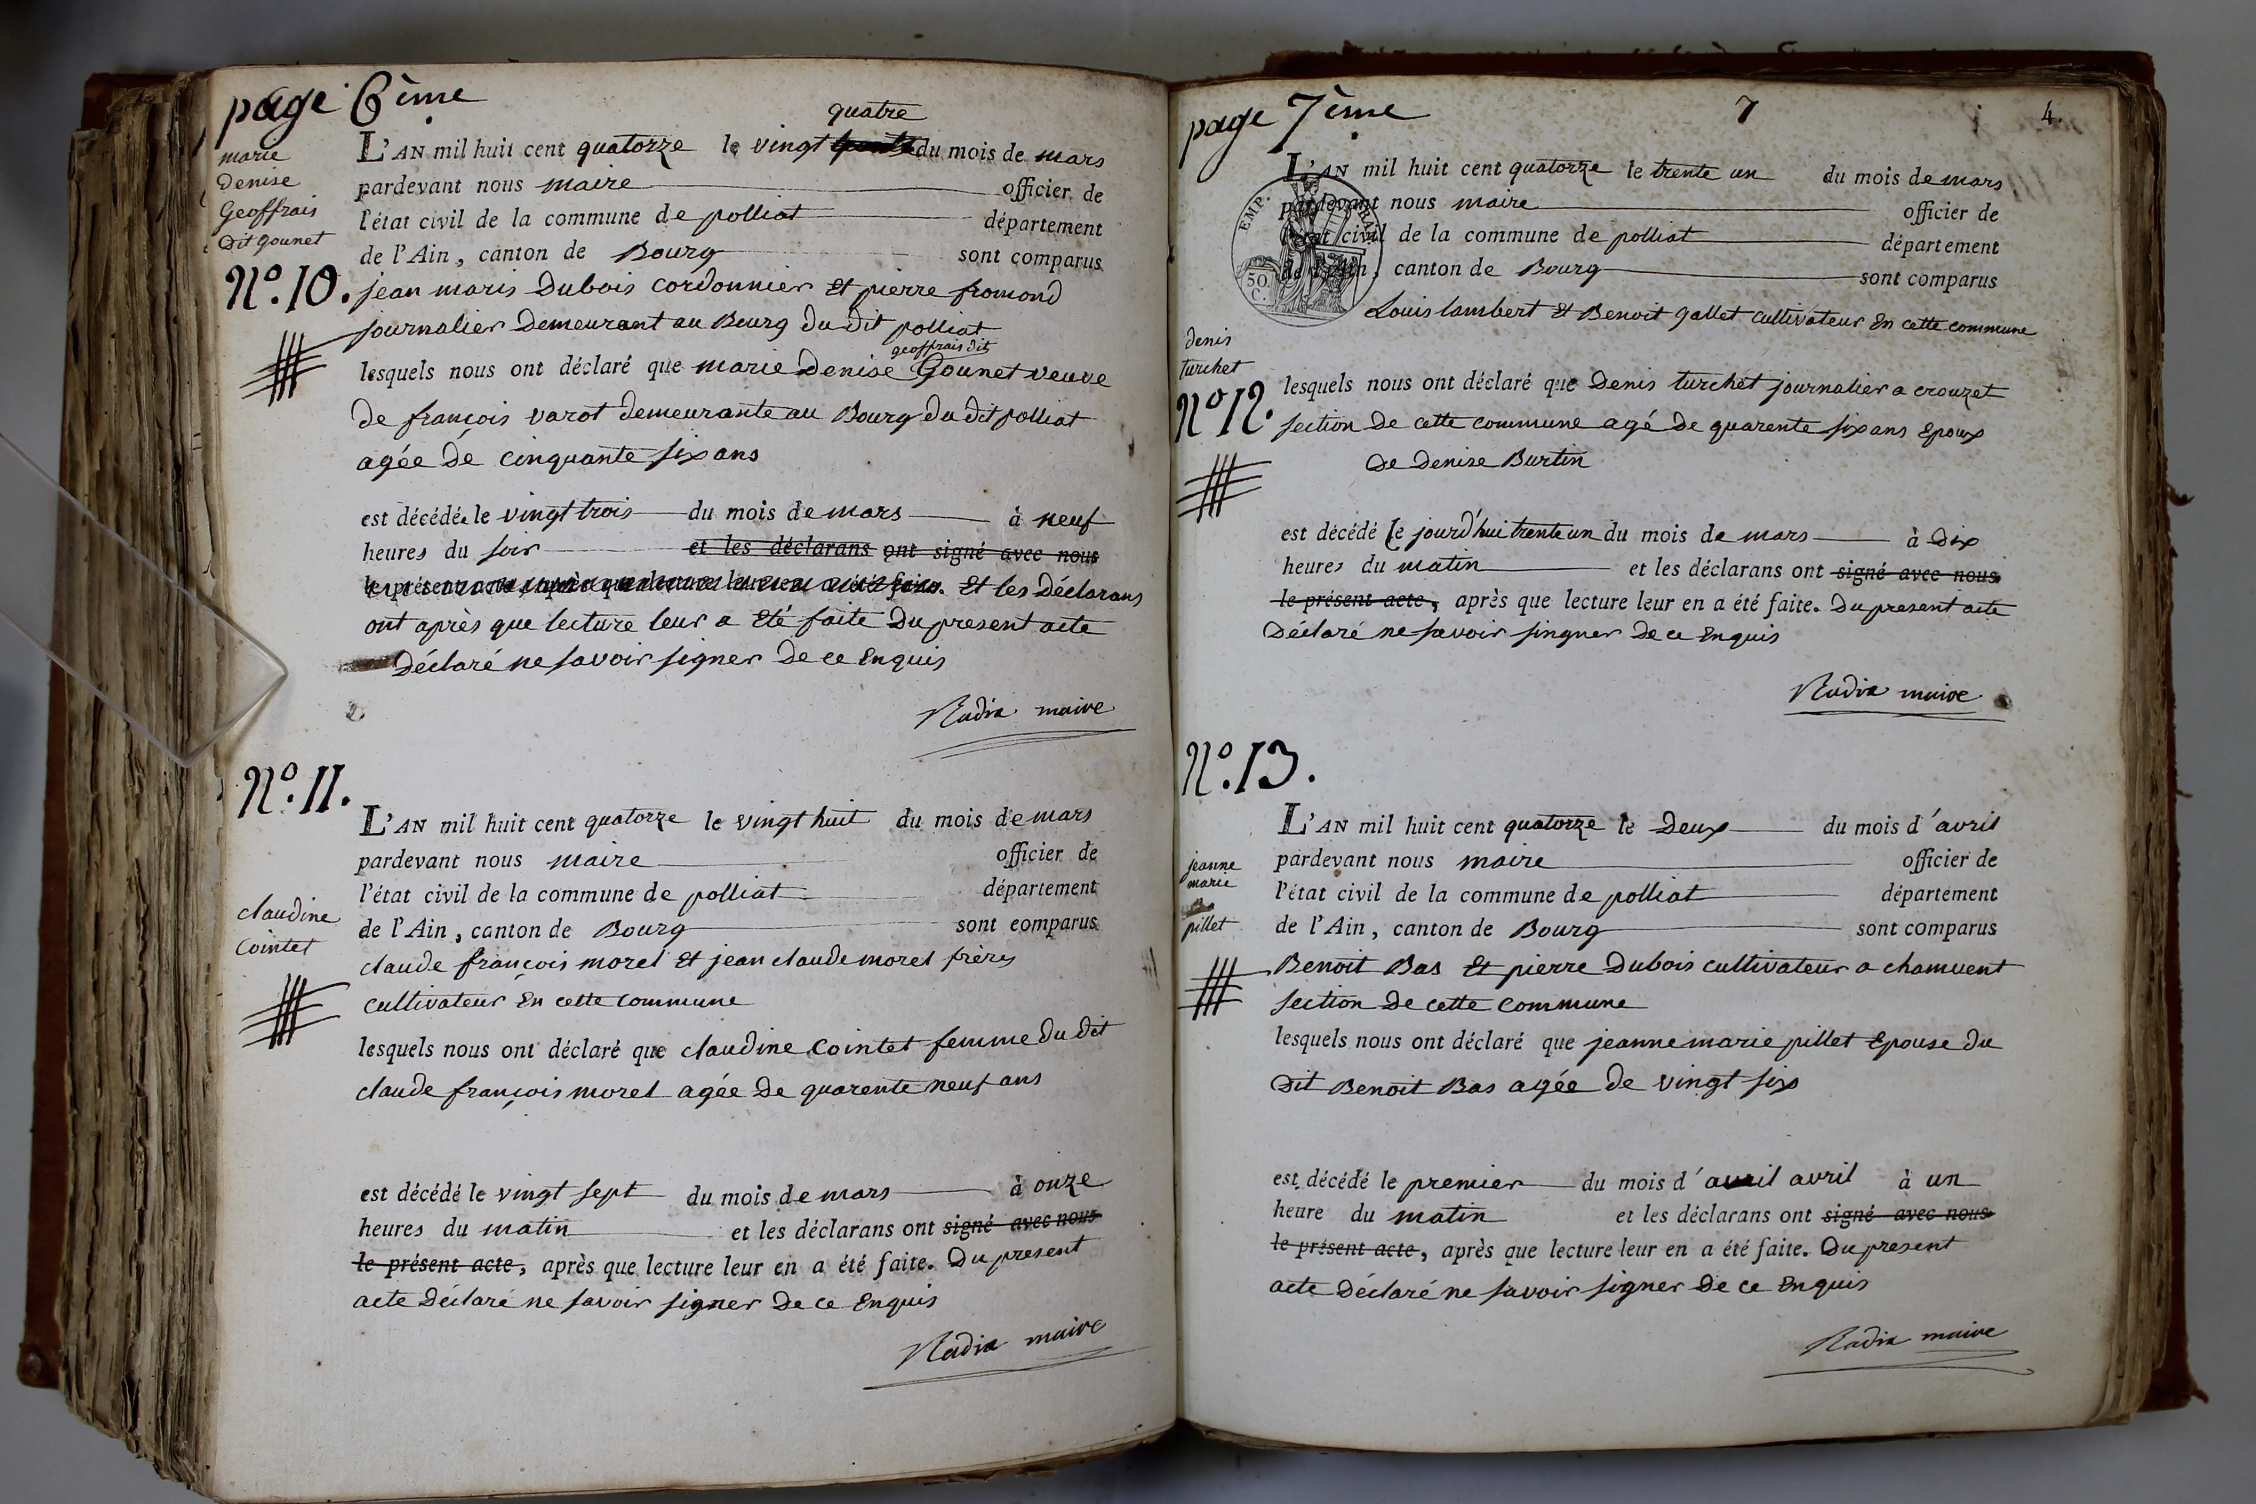 page 6ème
quatre
marie
Denise
Geoffrais
Dit Gounet
N.º 10.
L'AN mil huit cent quatorze le vingt du mois de mars
pardevant nous maire officier de
l'état civil de la commune de polliat département
de l'Ain, canton de Bourg sont comparus
jean maris Dubois cordonnier Et pierre fromond
journalier Demeurant au Bourg du dit polliat
geoffrais dit
lesquels nous ont déclaré que marie Denise Gounet veuve
de françois varot demeurante au Bourg du dit polliat
agée de cinquante six ans
est décédée le vingt trois du mois de mars à neuf
heures du soir et les déclarans ont signé avec nous
le présent acte, après que lecture leur en a été faite. Et les Déclarans
ont après que lecture leur a Eté faite Du present acte
Déclaré ne savoir signer De ce Enquis
Radix maire
N.º 11.
claudine
Cointet
L'AN mil huit cent quatorze le vingt huit du mois de mars
pardevant nous maire officier de
l'état civil de la commune de polliat département
de l'Ain, canton de Bourg sont comparus
claude françois morel Et jean claude morel frères
cultivateur En cette commune
lesquels nous ont déclaré que claudine Cointet femme du dit
claude françois morel agée De quarente neuf ans
est décédé le vingt sept du mois de mars à onze
heures du matin et les déclarans ont signé avec nous
le présent acte, après que lecture leur en a été faite. Du present
acte Déclaré ne savoir signer De ce Enquis
Radix maire
page 7ème
7
4.
EMP. FRAN.
50 C.
denis
turchet
Nº 12.
L'AN mil huit cent quatorze le trente un du mois de mars
pardevant nous maire officier de
l'état civil de la commune de polliat département
de l'Ain, canton de Bourg sont comparus
Louis lambert Et Benoit gallet cultivateur En cette commune
lesquels nous ont déclaré que Denis turchet journalier a crouzet
section De cette commune agé De quarente six ans Epoux
De Denise Burtin
est décédé le jourd'hui trente un du mois de mars à Dix
heures du matin et les déclarans ont signé avec nous
le présent acte, après que lecture leur en a été faite. Du present acte
Déclaré ne savoir singner De ce Enquis
Radix maire
N.º 13.
jeanne
marie
pillet
L'AN mil huit cent quatorze le Deux du mois d'avril
pardevant nous maire officier de
l'état civil de la commune de polliat département
de l'Ain, canton de Bourg sont comparus
Benoit Bas Et pierre Dubois cultivateur a chamvent
section De cette commune
lesquels nous ont déclaré que jeanne marie pillet Epouse du
Dit Benoit Bas agée de vingt six
est décédé le premier du mois d'avril avril à un
heure du matin et les déclarans ont signé avec nous
le présent acte, après que lecture leur en a été faite. Du present
acte Déclaré ne savoir signer De ce Enquis
Radix maire